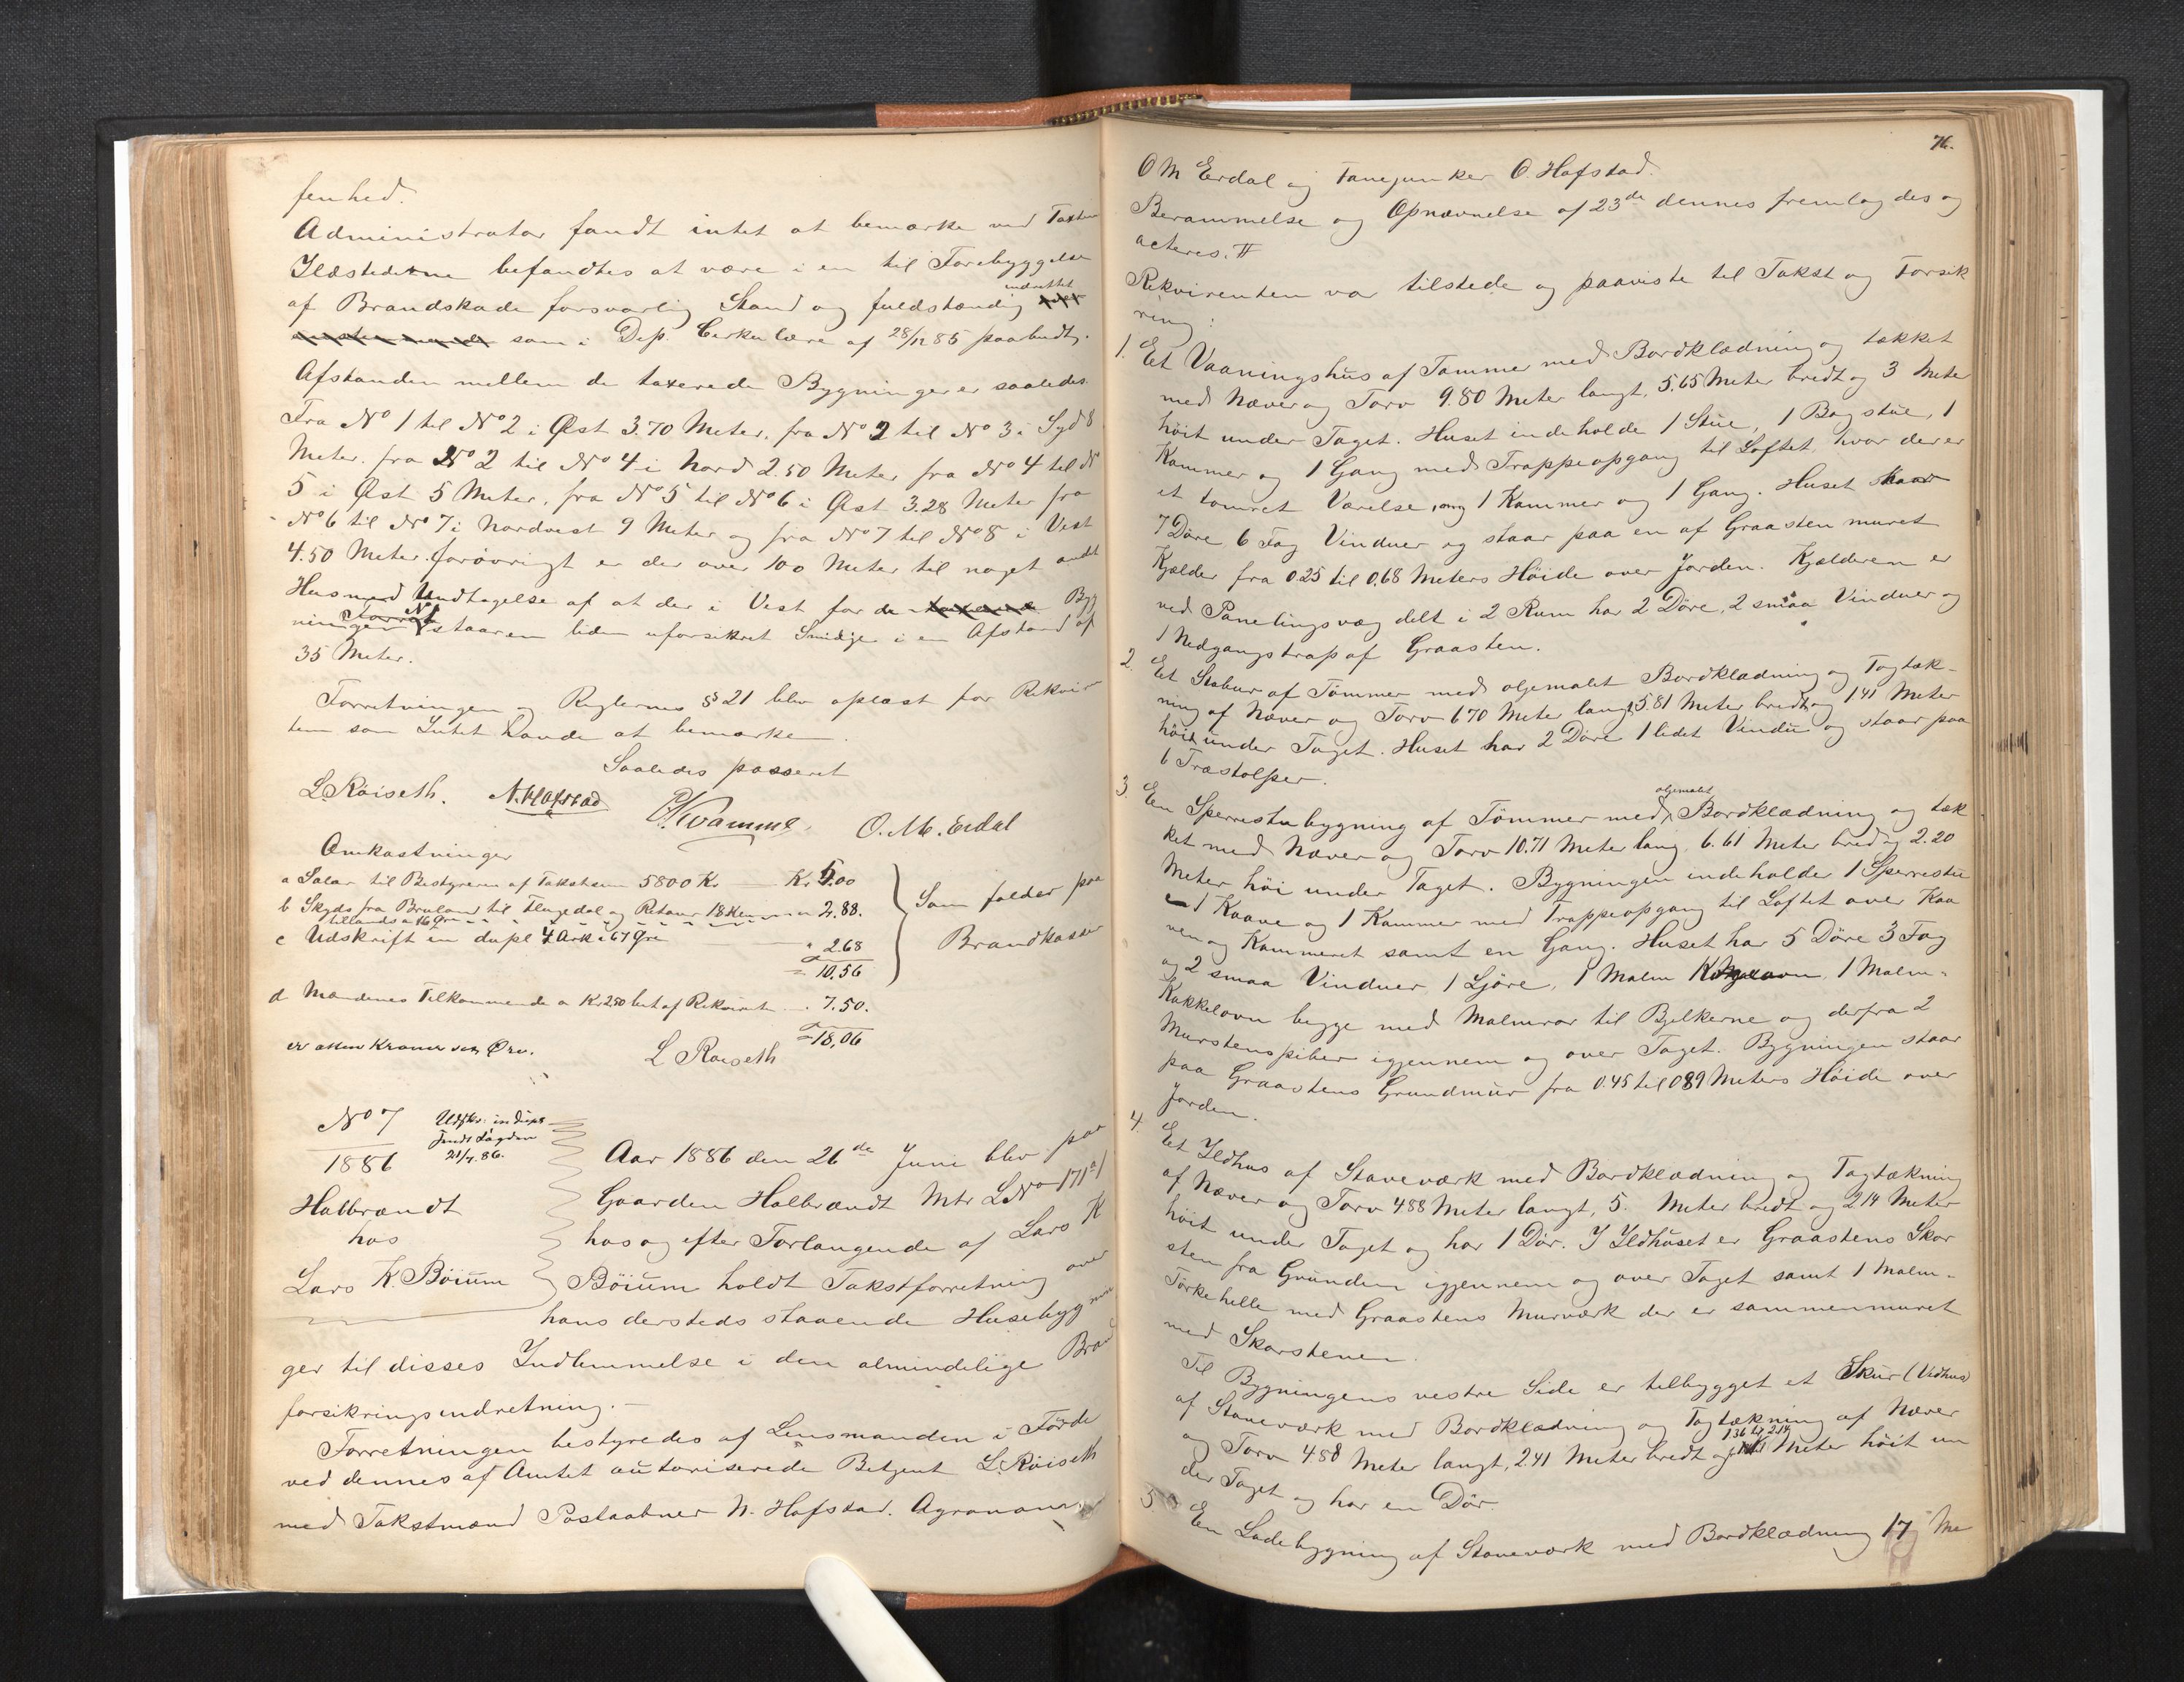 fenhed.
Administrator fandt intet at bemærke ved Taxten
Ildstederne befandtes at være i en til Forebyggelse
indrettet
af Brandskade forsvarlig Stand og fuldstændig
som i Dep. Cirkulære af 28/12 85 paabudt,
Afstanden mellem de taxerede Bygninger er saaledes
Fra No 1 til No 2 i Øst 3.70 Meter, fra No 2 til No 3 i Syd 8
Meter. fra No 2 til No 4 i Nord 2.50 Meter, fra No 4 til No
5 i Øst 5 Meter, fra No 5 til No 6 i Øst 3.28 Meter fra
No 6 til No 7 i Nordvest 9 Meter og fra No 7 til No 8 i Vest
4.50 Meter forøvrigt er der over 100 Meter til noget andet
Hus med Undtagelse af at der i Vest for de taxerede Byg
ningen No 1 staar en liden uforsikret Smidje i en Afstand af
35 Meter.
Forretningen og Reglernes § 21 blev oplæst for Rekviren
ten som Intet havde at bemærke.
Saaledes passeret
L. Røiseth. N. Hafstad P. Kvamme. O. M. Erdal
Omkostninger
a Salær til Bestyreren af Takstsum 5800 Kr Kr 5.00
b Skyds fra Bruland til Flugedal og Retour 18 Km " 2.88.
tillands a 16 Øre
c Udskrift in dupl 4 Ark a 67 Øre " 2.68
= 10.56
Som falder paa
Brandkassen
d Mændenes Tilkommende a Kr 2.50 bet af Rekvirent " 7.50.
= 18,06
er atten Kroner sex Øre.
L Røiseth
No 7
1886
Udskr. in dupl
sendt Lagden
21/7. 86.
Halbrændt
hos
Lars K. Bøium
Aar 1886 den 26de Juni blev paa
Gaarden Halbrændt Mtr LNo 171 a/
hos og efter Forlangende af Lars K
Bøium holdt Takstforretning over
hans dersteds staaende Husebygnin
ger til disses Indlemmelse i den almindelige Brand
forsikringsindretning.-
Forretningen bestyredes af Lensmanden i Førde
ved dennes af Amtet autoriserede Betjent L. Røiseth
med Takstmænd Postaabner N. Hafstad. Agronom
76.
O M Erdal og Fanejunker O. Hafstad.
Berammelse og Opnævnelse af 23de dennes fremlagdes og
acteres. #
Rekvirenten var tilstede og paaviste til Takst og Forsik
ring:
1. Et Vaaningshus af Tømmer med Bordklædning og tækket
med Næver og Torv 9.80 Meter langt, 5.65 Meter bredt og 3 Meter
høit under Taget. Huset indeholde 1 Stue, 1 Bagstue, 1
Kammer og 1 Gang med Trappeopgang til Loftet, hvor der er
et tomret Værelse, og 1 Kammer og 1 Gang. Huset har
7 Døre, 6 Fag Vinduer og staar paa en af Graasten muret
Kjælder fra 0.25 til 0.68 Meters Høide over Jorden. Kjælderen er
ved Panelingsvæg delt i 2 Rum har 2 Døre, 2 smaa Vinduer og
1 Nedgangstrap af Graasten.
2. Et Stabur af Tømmer med oljemalet Bordklædning og Tagtæk-
ning af Næver og Torv 6.70 Meter langt, 5.81 Meter bredt og 1.41 Meter
høit under Taget. Huset har 2 Døre 1 lidet Vindu og staar paa
6 Træstolper.
oljemalet
3. En Sperrestubygning af Tømmer med Bordklædning og tæk
ket med Næver og Torv 10.71 Meter lang, 6.61 Meter bred og 2.20
Meter høi under Taget. Bygningen indeholder 1 Sperrestue
1 Kaave og 1 Kammer med Trappeopgang til Loftet over Kaa
ven og Kammeret samt en Gang. Huset har 5 Døre 3 Fag
og 2 smaa Vinduer, 1 Ljøre, 1 Malm Kogeovn, 1 Malm-
Kakkelovn begge med Malmrør til Bjelkerne og derfra 2
Murstenspiber igjennem og over Taget. Bygningen staar
paa Graastens Grundmur fra 0.45 til 0.89 Meters Høide over
Jorden.
4. Et Ildhus af Staveværk med Bordklædning og Tagtækning
af Næver og Torv 4.88 Meter langt, 5. Meter bredt og 2.14 Meter
høit under Taget og har 1 Dør. I Ildhuset er Graastens Skor
sten fra Grunden igjennem og over Taget samt 1 Malm-
Tørkehelle med Graastens Murværk der er sammenmuret
med Skorstenen.
Til Bygningens vestre Side er tilbygget et Skur (Vedhus)
af Staveværk med Bordklædning og Tagtækning af Næver
1.36 til 2.14
og Torv 4.88 Meter langt, 2.41 Meter bredt og Meter høit un
der Taget og har en Dør.
5. En Ladebygning af Staveværk med Bordklædning 17 Me